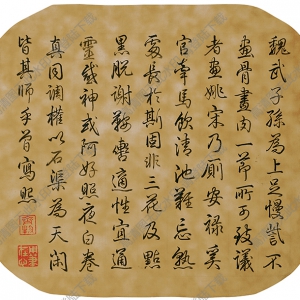 魏武子孫為上足慢訾不
畫骨畫肉一節所可致議
者畫姚宋乃厠安祿奚
官牽馬飲清池難忘熟
處長於斯固非三花及點
黑脫謝鞍轡適性宜通
靈神或阿好照夜白卷
真同調權以石渠為天閑
皆其師乎曾寫照